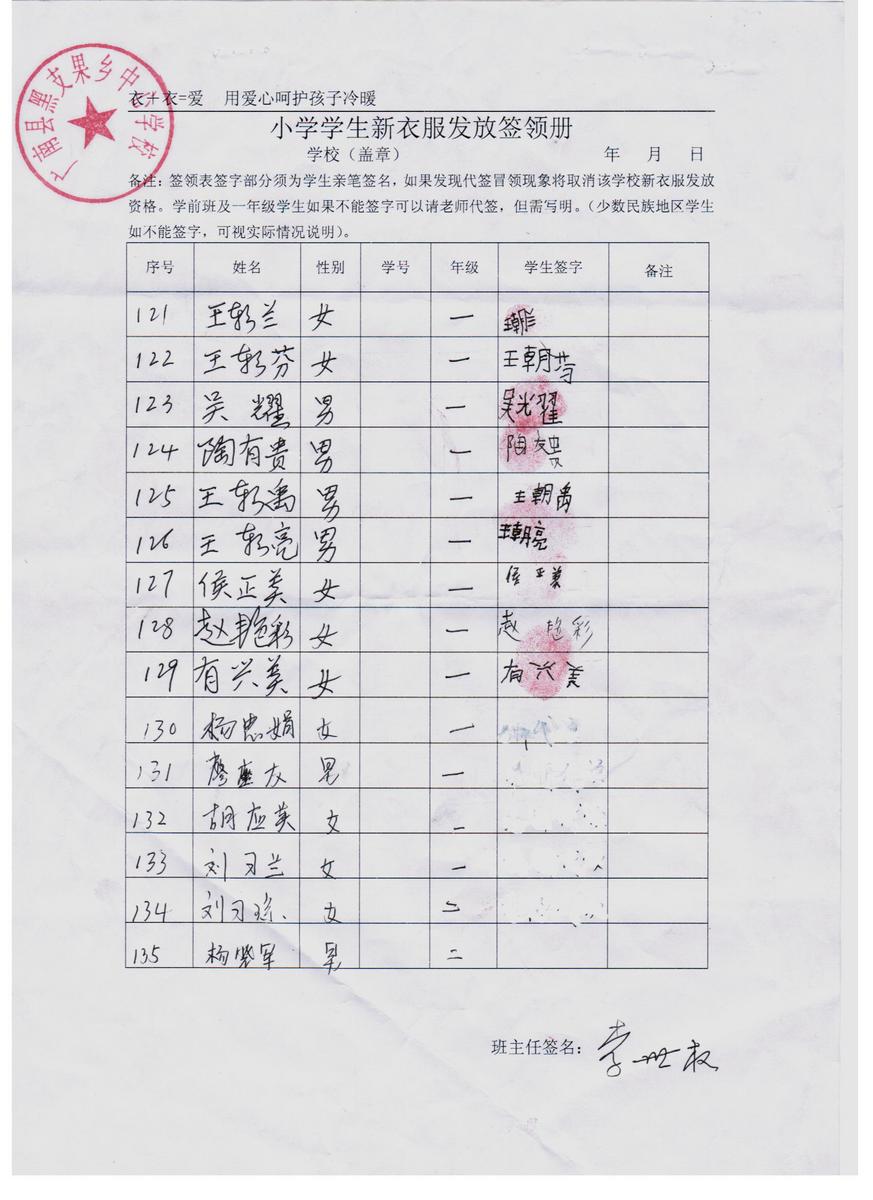 广南县黑支果乡中心学校
衣+衣=爱 用爱心呵护孩子冷暖
小学学生新衣服发放签领册
学校（盖章） 年 月 日
备注：签领表签字部分须为学生亲笔签名，如果发现代签冒领现象将取消该学校新衣服发放
资格。学前班及一年级学生如果不能签字可以请老师代签，但需写明。（少数民族地区学生
如不能签字，可视实际情况说明）。
序号 姓名 性别 学号 年级 学生签字 备注
121 王朝兰 女 一
122 王朝芬 女 一 王朝芬
123 吴 耀 男 一 吴光耀
124 陶有贵 男 一 陶友贵
125 王朝禹 男 一 王朝禹
126 王朝亮 男 一 王朝亮
127 侯正美 女 一 侯正美
128 赵艳彩 女 一 赵艳彩
129 有兴美 女 一 有兴美
130 杨忠娟 女 一
131 廖座友 男 一
132 胡应英 女 一
133 刘习兰 女 一
134 刘习琼 女 二
135 杨 军 男 二
班主任签名：李世权